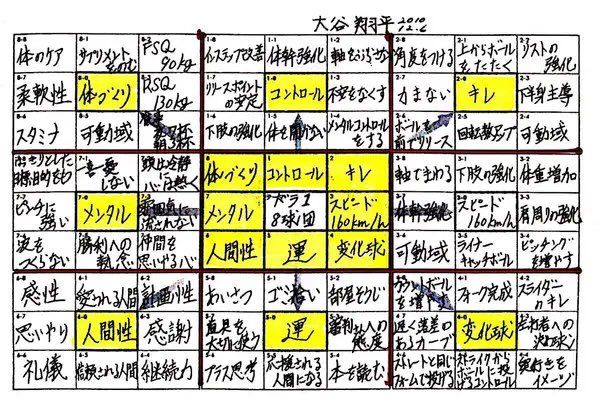 大谷 翔平 2010 12.6
体のケア
サプリメントをのむ
FSQ 90kg
インステップ改善
体幹強化
軸をぶらさない
角度をつける
上からボールをたたく
リストの強化
柔軟性
体づくり
RSQ 130kg
リリースポイントの安定
コントロール
不安をなくす
力まない
キレ
下半身主導
スタミナ
可動域
食事 夜7杯 朝3杯
下肢の強化
体を開かない
メンタルコントロールをする
ボールを前でリリース
回転数アップ
可動域
はっきりとした目標、目的をもつ
一喜一憂しない
頭は冷静に 心は熱く
体づくり
コントロール
キレ
軸でまわる
下肢の強化
体重増加
ピンチに強い
メンタル
雰囲気に流されない
メンタル
ドラ1 8球団
スピード 160km/h
体幹強化
スピード 160km/h
肩周りの強化
波をつくらない
勝利への執念
仲間を思いやる心
人間性
運
変化球
可動域
ライナーキャッチボール
ピッチングを増やす
感性
愛される人間
計画性
あいさつ
ゴミ拾い
部屋そうじ
カウントボールを増やす
フォーク完成
スライダーのキレ
思いやり
人間性
感謝
道具を大切に使う
運
審判さんへの態度
遅く落差のあるカーブ
変化球
左打者への決め球
礼儀
信頼される人間
継続力
プラス思考
応援される人間になる
本を読む
ストレートと同じフォームで投げる
ストライクからボールに投げるコントロール
奥行きをイメージ